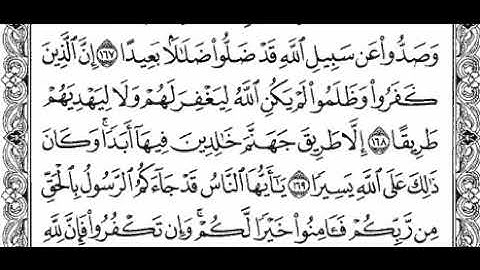 وَصَدُّوا۟ عَن سَبِيلِ ٱللَّهِ قَدْ ضَلُّوا۟ ضَلَـٰلًۢا بَعِيدًا ١٦٧ إِنَّ ٱلَّذِينَ
كَفَرُوا۟ وَظَلَمُوا۟ لَمْ يَكُنِ ٱللَّهُ لِيَغْفِرَ لَهُمْ وَلَا لِيَهْدِيَهُمْ
طَرِيقًا ١٦٨ إِلَّا طَرِيقَ جَهَنَّمَ خَـٰلِدِينَ فِيهَآ أَبَدًا ۚ وَكَانَ
ذَٰلِكَ عَلَى ٱللَّهِ يَسِيرًا ١٦٩ يَـٰٓأَيُّهَا ٱلنَّاسُ قَدْ جَآءَكُمُ ٱلرَّسُولُ بِٱلْحَقِّ
مِن رَّبِّكُمْ فَـَٔامِنُوا۟ خَيْرًا لَّكُمْ ۚ وَإِن تَكْفُرُوا۟ فَإِنَّ لِلَّهِ